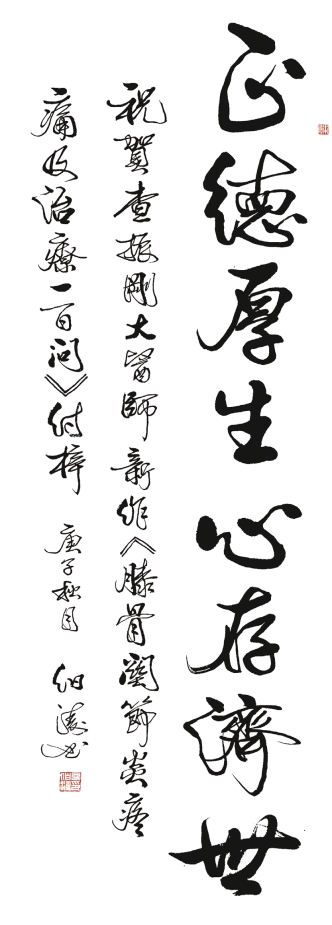 正德厚生心存濟世
祝賀查振剛大醫師新作《膝骨關節炎疼
痛及治療一百问》付梓
庚子秋月